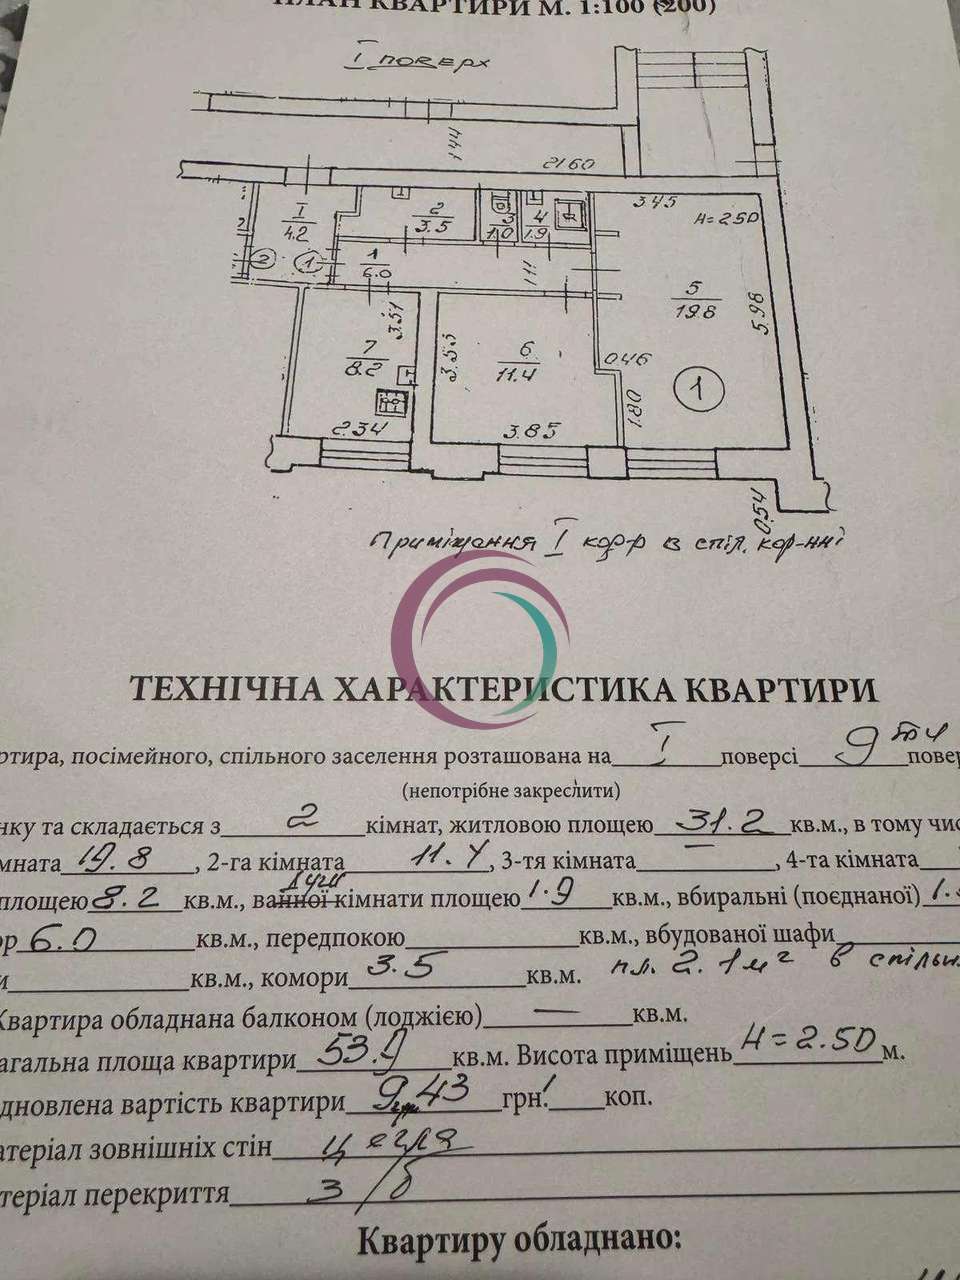 ПЛАН КВАРТИРИ М. 1:100 (200)
I поверх
144
2160
345
H=2.50
I
4.2
2
3.5
3
1.0
4
1.9
2
2
1
1
6.0
111
5
19.8
5.98
3.51
3.53
7
8.2
6
11.4
0.46
1
1.80
2.34
3.85
0.54
Приміщення I кор-р в спіл. кор-нні
ТЕХНІЧНА ХАРАКТЕРИСТИКА КВАРТИРИ
ртира, посімейного, спільного заселення розташована на I поверсі 9 ти повер
(непотрібне закреслити)
нку та складається з 2 кімнат, житловою площею 31.2 кв.м., в тому чис
мната 19.8, 2-га кімната 11.4, 3-тя кімната —, 4-та кімната
площею 8.2 кв.м., ванної кімнати площею 1.9 кв.м., вбиральні (поєднаної) 1.
ор 6.0 кв.м., передпокою кв.м., вбудованої шафи
и кв.м., комори 3.5 кв.м. пл. 2.1 м² в спільн
Квартира обладнана балконом (лоджією) — кв.м.
агальна площа квартири 53.9 кв.м. Висота приміщень H=2.50 м.
дновлена вартість квартири 9 43 грн. коп.
атеріал зовнішніх стін цегля
теріал перекриття з/б
Квартиру обладнано: